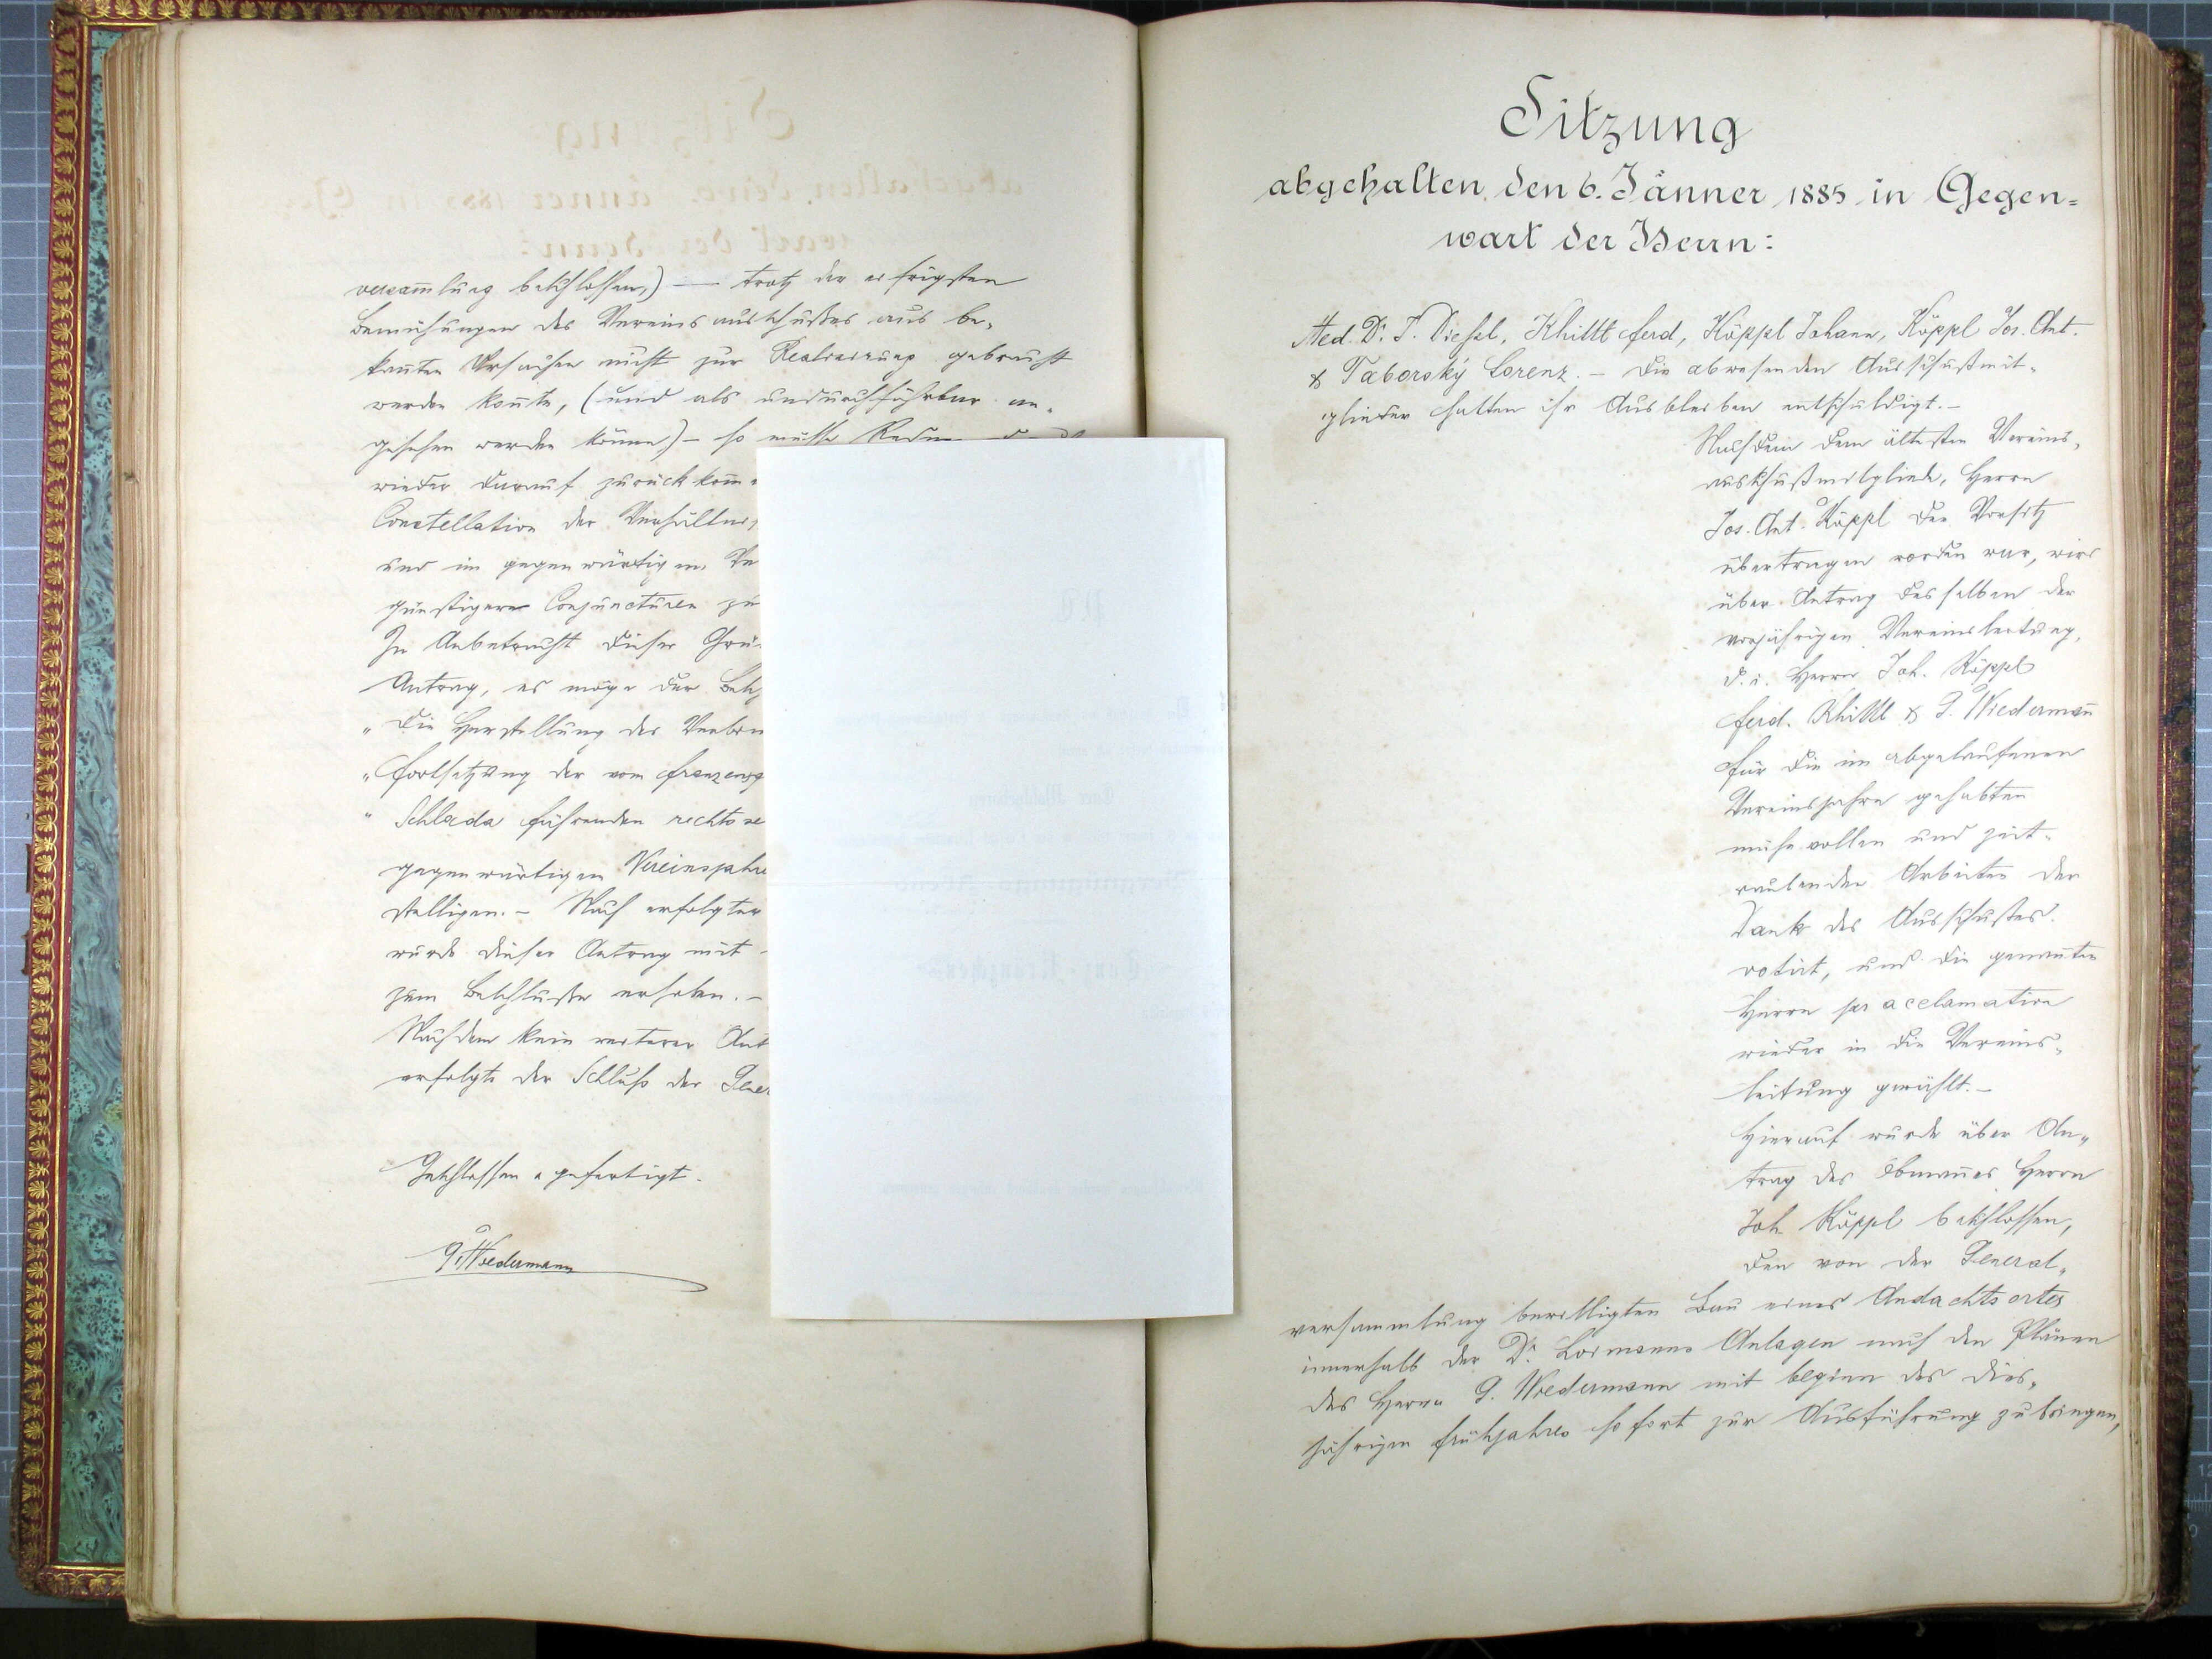 versam̅lung beschlossen,) — trotz der eifrigsten
Bemühungen des Vereinsausschußes aus be-
kan̅ten Ursachen nicht zur Realisirung gebracht
werden kon̅te, (und als undurchführbar an-
gesehen werden kön̅e) – so müsse Redner
wieder darauf zurückkom̅
Constellation der Verhältnis
und im gegenwärtigen Ve
günstigere Conjuncturen zu
In Anbetracht dieser Grü
Antrag, es möge der Besch
„ Die Herstellung des Verbin
„ Fortsetzung der vom Franzens
„ Schlada führenden rechts
gegenwärtigen Vereinsjahre
stelligen. – Nach erfolgter
wurde dieser Antrag mit
zum Beschlusse erhoben. –
Nachdem kein weiterer Ant
erfolgte der Schluß der Gener
Geschlossen & gefertigt.
G. Wiedermann
Sitzung
abgehalten den 6. Jänner 1885 in Gegen=
wart der Herrn:
Med. Dr. J. Diessl, Khittl Ferd, Köppl Johann, Köppl Jos. Ant.
& Taborský Lorenz. – Die abwesenden Ausschußmit-
glieder hatten ihr Ausbleiben entschuldigt. –
Nachdem dem ältesten Vereins-
ausschußmitgliede, Herrn
Jos. Ant. Köppl der Vorsitz
übertragen worden war, wird
über Antrag desselben der
vorjährigen Vereinsleitung,
d. i. Herrn Joh. Köppl
Ferd. Khittl & G. Wiederman̅
für die im abgelaufenen
Vereinsjahre gehabten
mühevollen und zeit-
raubenden Arbeiten der
Dank des Ausschußes
votirt, und die genan̅ten
Herrn per acclamation
wieder in die Vereins-
leitung gewählt. –
Hierauf wurde über An-
trag des Obman̅es Herrn
Joh. Köppl beschlossen,
den von der General-
versammlung bewilligten Bau eines Andachtsortes
innerhalb der Dr. Loimanns Anlagen nach den Plänen
des Herrn G. Wiedermann mit Beginn des dies-
jährigen Frühjahres sofort zur Ausführung zu bringen,